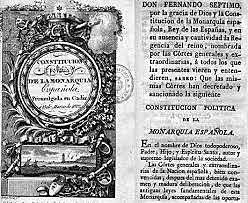 CONSTITUCION
DE LA MONARQUIA
Española,
Promulgada en Cadiz
DON FERNANDO SEPTIMO,
por la gracia de Dios y la Constitu-
cion de la Monarquía española,
Rey de las Españas, y en
su ausencia y cautividad la Regencia
del reino, nombrada
por las Córtes generales y ex-
traordinarias, á todos los que
las presentes vieren y entendieren,
SABED: Que las mis-
mas Córtes han decretado y
sancionado la siguiente
CONSTITUCION POLITICA
DE LA
MONARQUIA ESPAÑOLA.
En el nombre de Dios todopoderoso,
Padre, Hijo, y Espíritu Santo, autor y
supremo legislador de la sociedad.
Las Córtes generales y extraordina-
rias de la Nacion española, bien
convencidas, despues del mas detenido
exámen y madura deliberacion, de que
las antiguas leyes fundamentales de esta
Monarquía, acompañadas de las oportu-